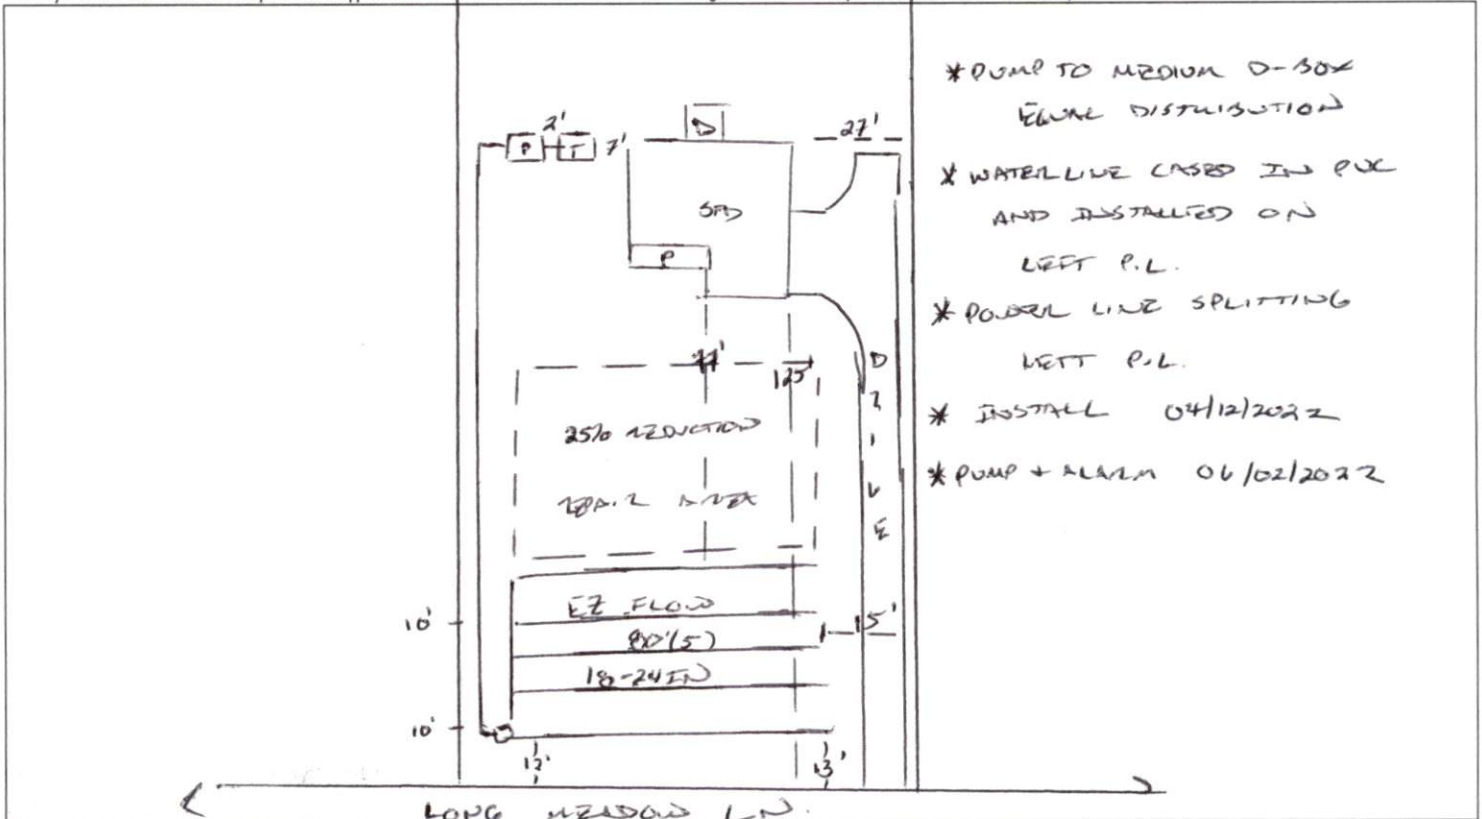 * PUMP TO MEDIUM D-BOX
EQUAL DISTRIBUTION
* WATERLINE CASED IN PVC
AND INSTALLED ON
LEFT P.L.
* POWER LINE SPLITTING
LEFT P.L.
* INSTALL 04/12/2022
* PUMP + ALARM 06/02/2022
2'
P
T
7'
D
27'
SFD
P
125'
DRIVE
25% REDUCTION
REPAIR AREA
EZ FLOW
80'(5)
18-24IN
10'
15'
10'
12'
13'
LONG MEADOW LN.